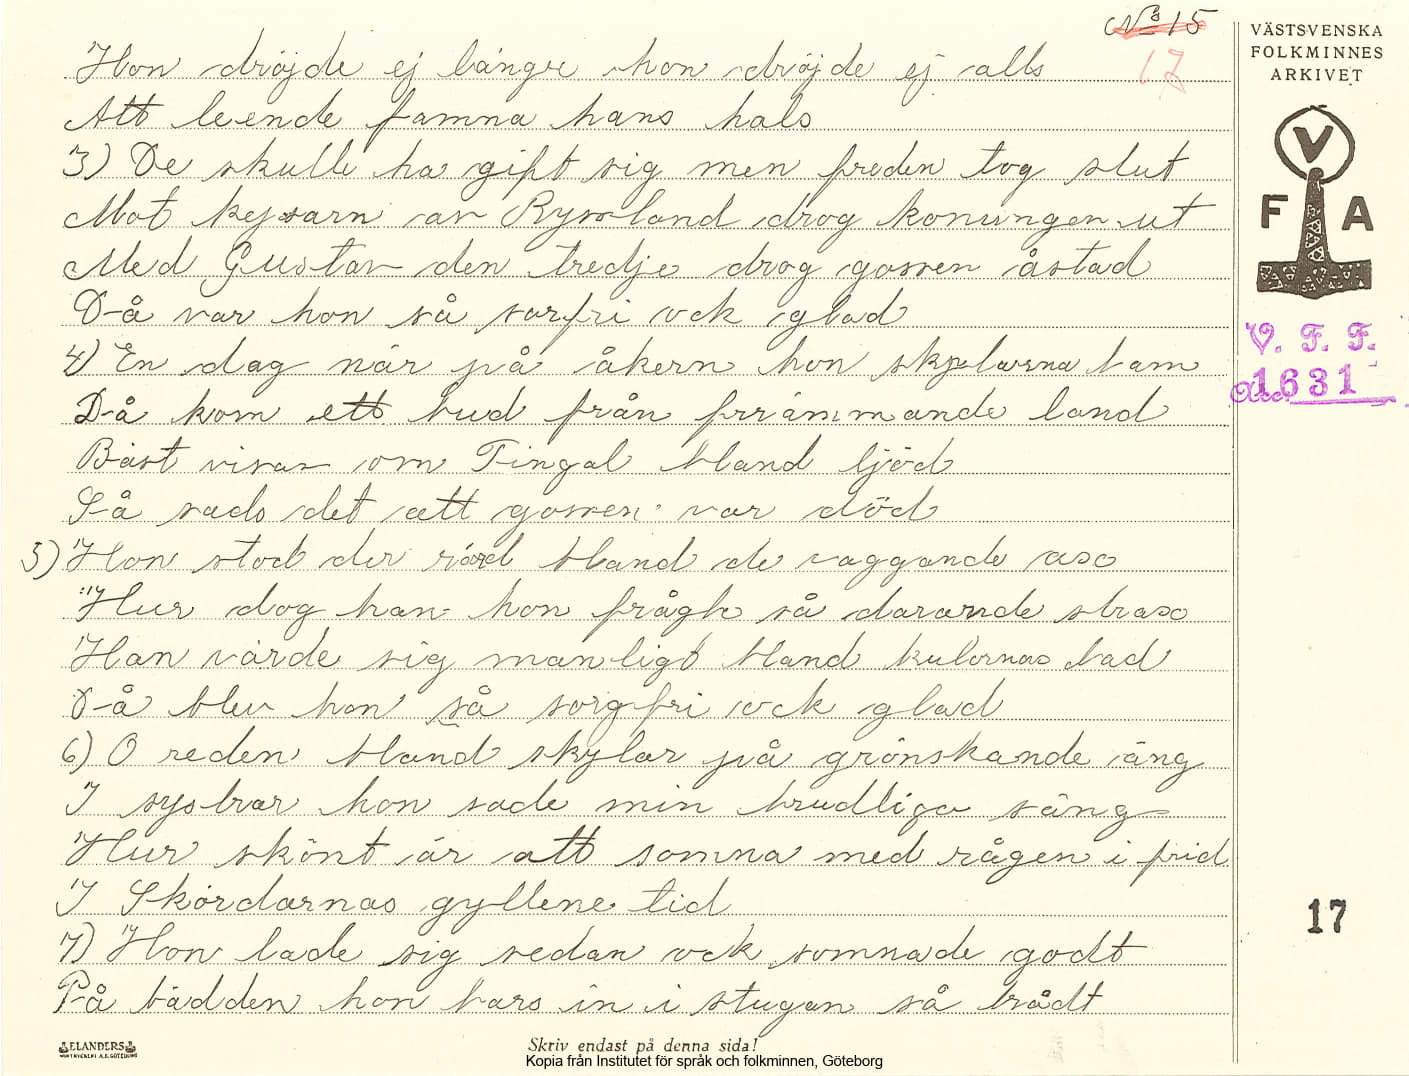 No 15
17
VÄSTSVENSKA
FOLKMINNES
ARKIVET
V
F A
V. F. F.
Acc. 1631
Hon dröjde ej länge hon dröjde ej alls
Att leende famna hans hals
3) De skulle ha gift sig men freden tog slut
Mot kejsarn av Ryssland drog konungen ut
Med Gustav den tredje drog gossen åstad
Då var hon så sorfri ock glad
4) En dag när på åkern hon skylarna bam
Då kom ett bud från främmande land
Bäst visar om Fingal bland ljöd
Så sads det att gossen var död
5) Hon stod der röd bland de vaggande ax
"Hur dog han hon frågte så darande strax
Han värde sig manligt bland kulornas bad
Då blev hon så sorgfri ock glad
6) O reden bland skylar på grönskande äng
I systrar hon sade min brudliga säng
Hur skönt är att somna med rågen i frid
I Skördarnas gyllene tid
7) Hon lade sig sedan ock somnade godt
På bädden hon bars in i stugan så brådt
17
ELANDERS
Skriv endast på denna sida!
Kopia från Institutet för språk och folkminnen, Göteborg